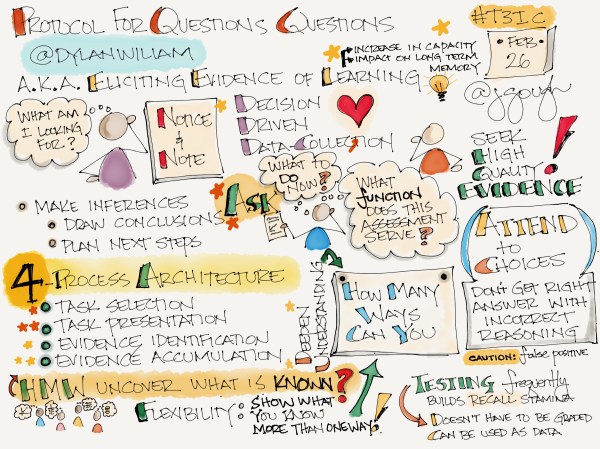 PROTOCOL FOR QUESTIONS QUESTIONS
@DYLANWILIAM
A.K.A. ELICITING EVIDENCE OF LEARNING
INCREASE IN CAPACITY
IMPACT ON LONG TERM
MEMORY
#T3IC
FEB
26
@jsgough
WHAT AM
I LOOKING
FOR?
NOTICE
&
NOTE
DECISION
DRIVEN
DATA-COLLECTION
SEEK
HIGH
QUALITY
EVIDENCE
MAKE INFERENCES
DRAW CONCLUSIONS
PLAN NEXT STEPS
ASK
WHAT TO
DO
NOW?
WHAT
JUNCTION
DOES THIS
ASSESSMENT
SERVE?
ATTEND
to
CHOICES
DON'T GET RIGHT
ANSWER WITH
INCORRECT
REASONING
CAUTION: false positive
4-PROCESS ARCHITECTURE
TASK SELECTION
TASK PRESENTATION
EVIDENCE IDENTIFICATION
EVIDENCE ACCUMULATION
DEEPEN
UNDERSTANDING
HOW MANY
WAYS
CAN YOU
HMW UNCOVER WHAT IS KNOWN?
FLEXIBILITY:
SHOW WHAT
YOU KNOW
MORE THAN ONE WAY!
TESTING frequently
BUILDS RECALL STAMINA
DOESN'T HAVE TO BE GRADED
CAN BE USED AS DATA